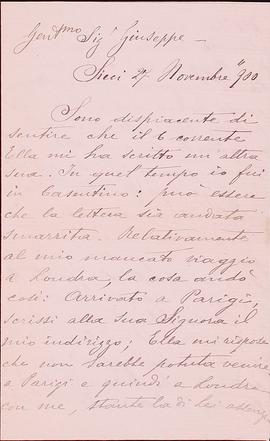 Gent.mo Sig.r Giuseppe —
Sieci 27 Novembre 900
Sono dispiacente di
sentire che il 6 corrente
Ella mi ha scritto un'altra
sua. In quel tempo io fui
in Casentino: può essere
che la lettera sia andata
smarrita. Relativamente
al mio mancato viaggio
a Londra, la cosa andò
così: Arrivato a Parigi,
scrissi alla sua Signora il
mio indirizzo; Ella mi rispose
che non sarebbe potuta venire
a Parigi e quindi a Londra
con me, stante la di lei assenza